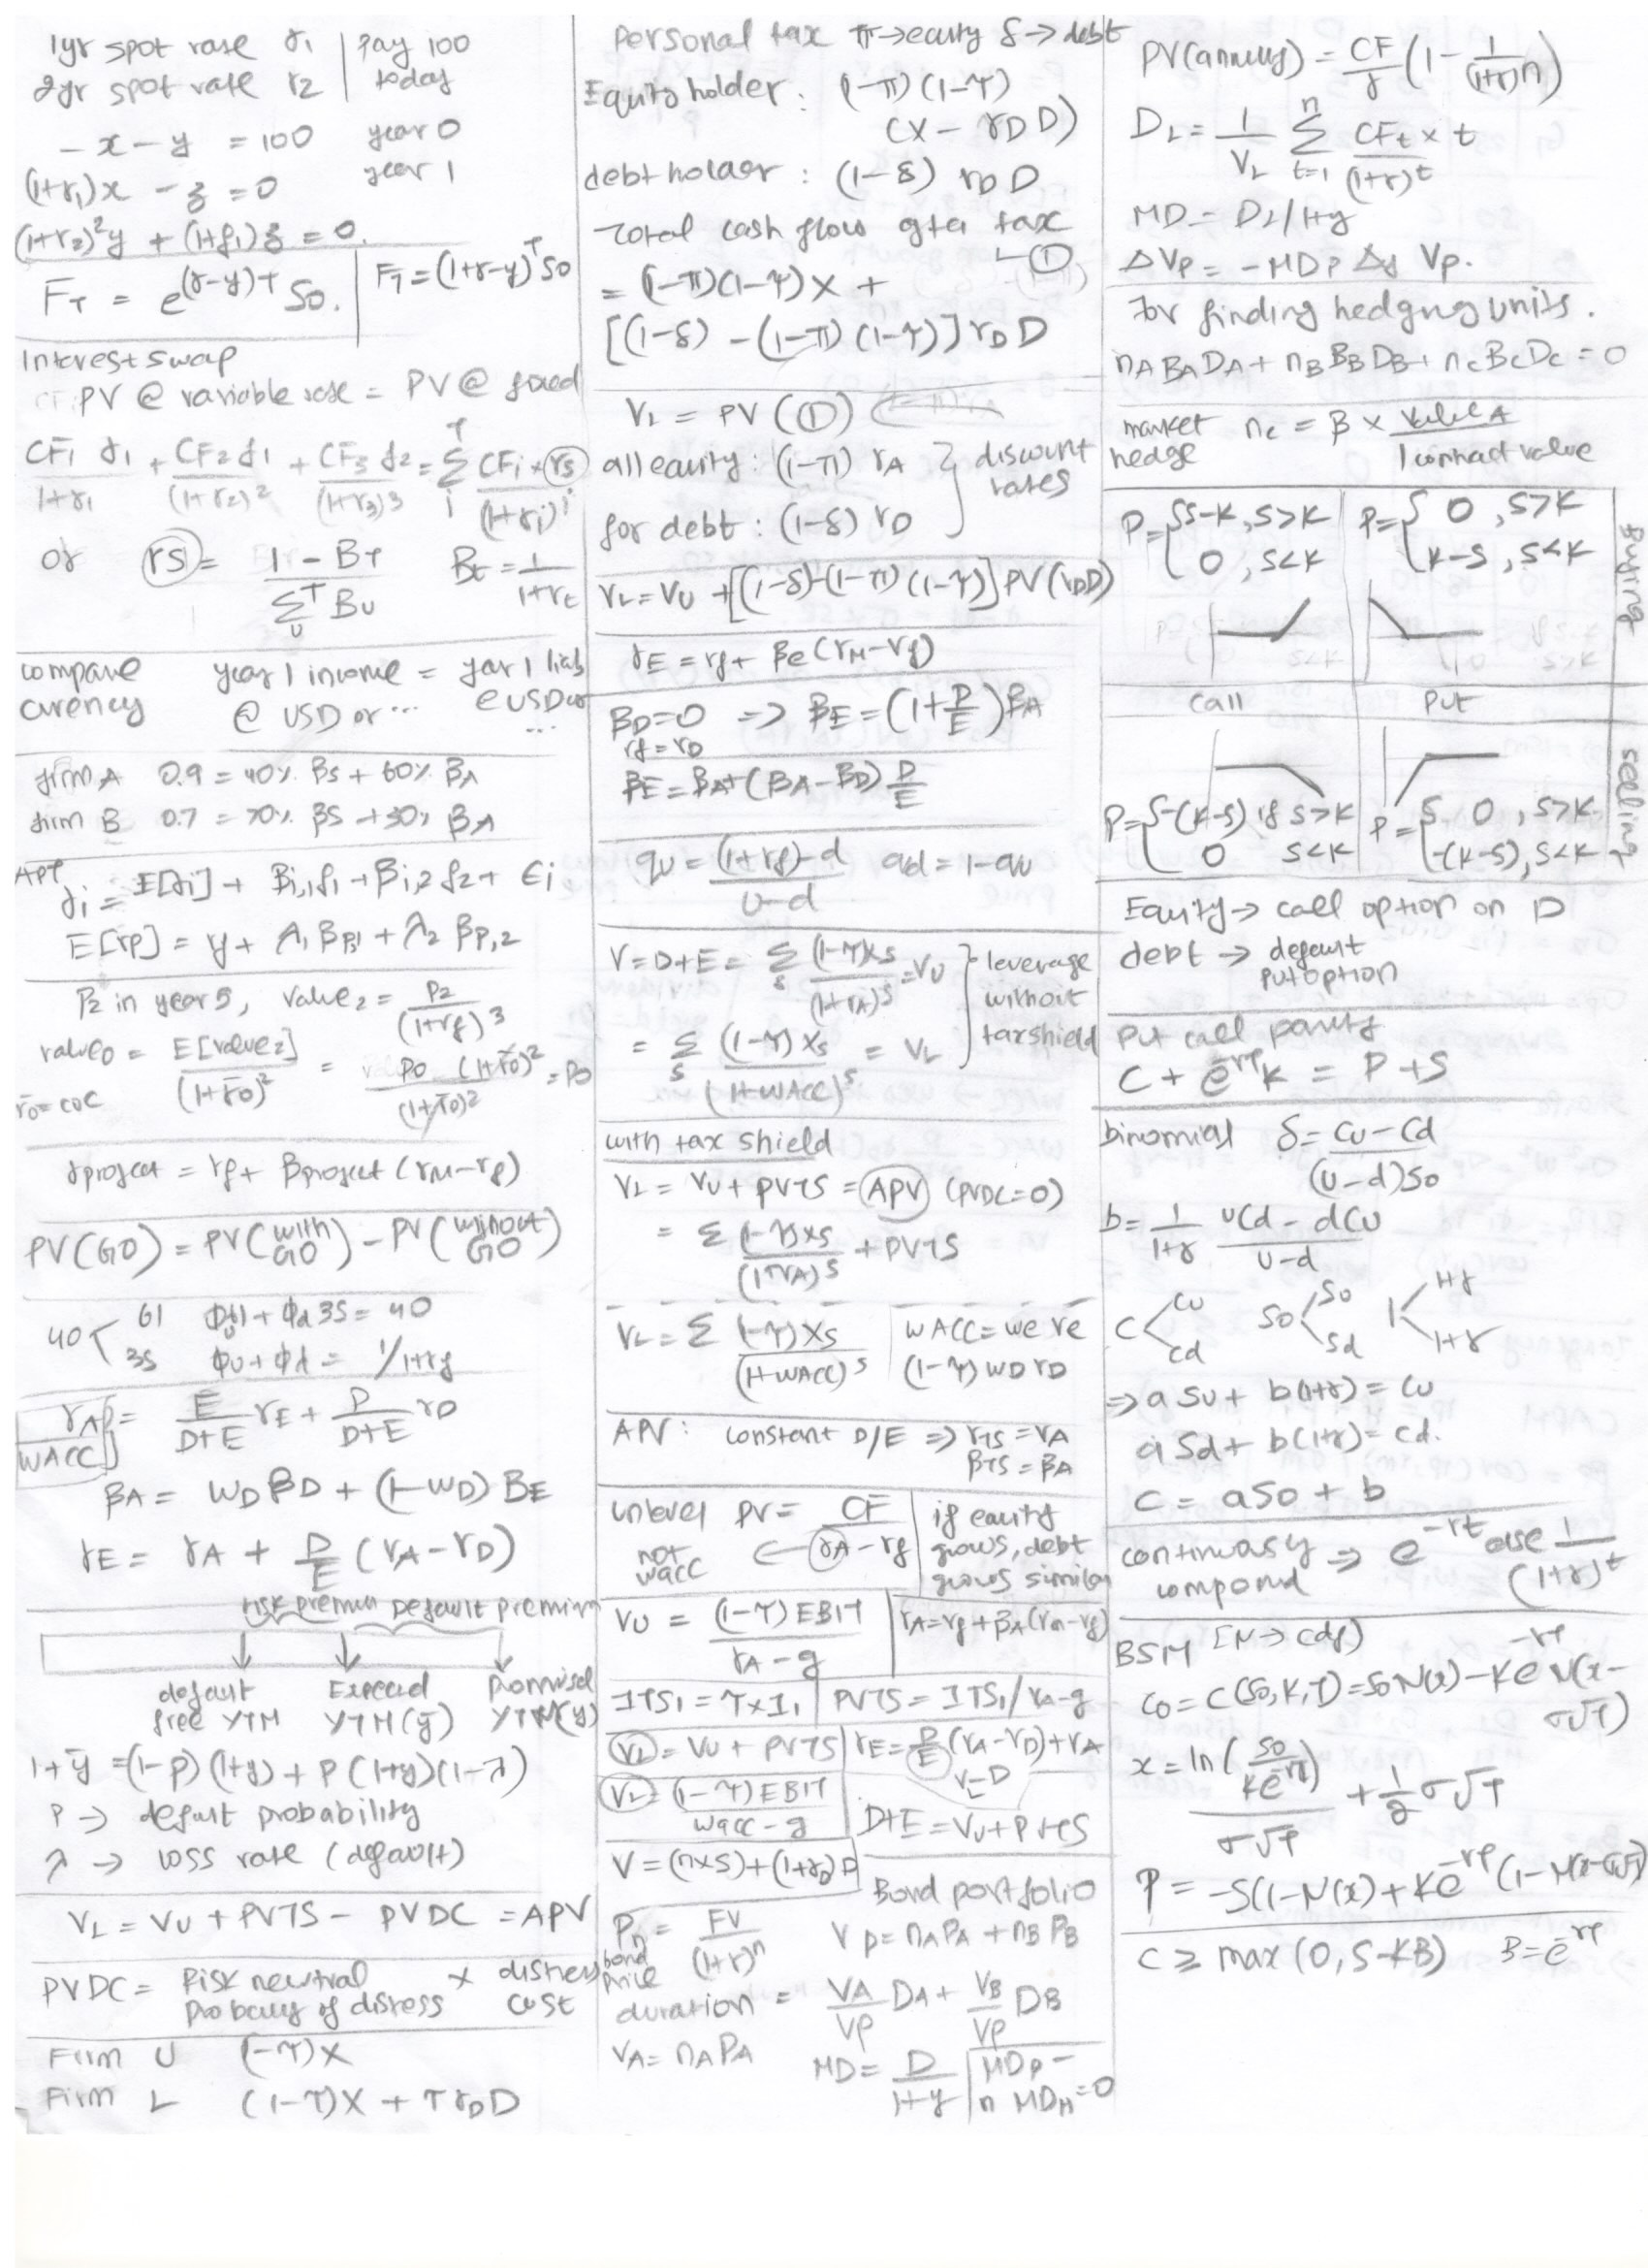 1yr spot rate r1 | pay 100
2yr spot rate r2 | today
-x-y = 100 year 0
(1+r1)x - z = 0 year 1
(1+r2)²y + (1+f1)z = 0.
F_T = e^(r-y)T S0. | F_T = (1+r-y)^T S0
Interest swap
PV @ variable rate = PV @ fixed
CF1 r1/(1+r1) + CF2 f1/(1+r2)² + CF3 f2/(1+r3)³ = Σ_i^T CFi × rs/(1+ri)^i
or rs = (1 - B_T)/(Σ_u^T Bu) Bt = 1/(1+rt)
compare year 1 income = year 1 liab
curency @ USD or ... @ USD or
...
firm A 0.9 = 40% βs + 60% βA
firm B 0.7 = 70% βs + 30% βA
APT
ri = E[ri] + βi,1 f1 + βi,2 f2 + εi
E[rp] = rf + λ1 βp,1 + λ2 βp,2
P2 in year 5, value2 = P2/(1+rf)³
value0 = E[value2]/(1+r̄0)² = P0 (1+r̄0)²/(1+r̄0)² = P0
r̄0 = coc
rproject = rf + βproject (rM - rf)
PV(GO) = PV(with GO) - PV(without GO)
40 < 61 Φu61 + Φd 35 = 40
35 Φu + Φd = 1/1+rf
rA = E/(D+E) rE + D/(D+E) rD
WACC
βA = WD βD + (1-WD) βE
rE = rA + D/E (rA - rD)
risk premium Default premium
default Expected Promised
free YTM YTM(ȳ) YTM(y)
1+ȳ = (1-p)(1+y) + p(1+y)(1-λ)
p → default probability
λ → loss rate (default)
VL = VU + PVTS - PVDC = APV
PVDC = Risk neutral × distress
Probality of distress cost
Firm U (1-τ)X
Firm L (1-τ)X + τ rD D
Personal tax π→equity δ→debt
Equity holder : (1-π)(1-τ)
(X - rD D)
debt holder : (1-δ) rD D
Total cash flow after tax
①
= (1-π)(1-τ)X +
[(1-δ) - (1-π)(1-τ)] rD D
VL = PV(①)
all equity : (1-π) rA } discount
rates
for debt : (1-δ) rD
VL = VU + [(1-δ)-(1-π)(1-τ)] PV(rD D)
rE = rf + βe (rM - rf)
βD=0 ⇒ βE = (1+D/E) βA
rf = rD
βE = βA + (βA - βD) D/E
qu = ((1+rf)-d)/(u-d) qd = 1-qu
V = D+E = Σ_s (1-τ)Xs/(1+rA)^s = VU } leverage
without
= Σ_s (1-τ)Xs/(1+WACC)^s = VL taxshield
with tax shield
VL = VU + PVTS = APV (PVDC=0)
= Σ (1-τ)Xs/(1+rA)^s + PVTS
VL = Σ (1-τ)Xs/(1+WACC)^s | WACC = we re
(1-τ) WD rD
APV : constant D/E ⇒ rTS = rA
βTS = βA
unlever PV = CF/(rA - rf) | if equity
not grows, debt
wacc grows similar
VU = (1-τ)EBIT/(rA - g) | rA = rf + βA(rm - rf)
ITS1 = τ×I1 | PVTS = ITS1/rA-g
VL = VU + PVTS | rE = D/E (rA - rD) + rA
VL-D
VL = (1-τ)EBIT/(wacc-g) D+E = VU + PVTS
V = (n×S) + (1+rD)D
Bond portfolio
Pn = FV/(1+r)^n Vp = nA PA + nB PB
bond
price
duration = VA/Vp DA + VB/Vp DB
VA = nA PA MD = D/(1+y) | MDp -
n MDH = 0
PV(annuity) = CF/r (1 - 1/(1+r)^n)
DL = 1/VL Σ_t=1^n CFt × t/(1+r)^t
MD = DL/1+y
ΔVp = -MDp Δy Vp.
For finding hedging units.
nA BA DA + nB BB DB + nc Bc Dc = 0
market nc = β × Value A/1 contract value
hedge
P = { S-K, S>K | P = { 0, S>K
0, S<K | K-S, S<K
Buying
call put
selling
P = { -(K-S) if S>K | P = { 0, S>K
0 S<K | -(K-S), S<K
Equity → call option on D
debt → default
put option
Put call parity
C + e^-rT K = P + S
binomial δ = (Cu - Cd)/((u-d)S0
b = 1/(1+r) (uCd - dCu)/(u-d)
C < Cu S0 < Su 1 < 1+r
Cd Sd 1+r
⇒ a Su + b(1+r) = Cu
a Sd + b(1+r) = Cd.
C = aS0 + b
continuosy ⇒ e^-rt else 1/(1+r)^t
compond
BSM [N → cdf)
C0 = C(S0,K,T) = S0 N(x) - Ke^-rT N(x-
σ√T)
x = ln(S0/Ke^-rT)/σ√T + 1/2 σ√T
P = -S(1-N(x) + Ke^-rT (1-N(x-σ√T)
C ≥ max (0, S-KB) B = e^-rT